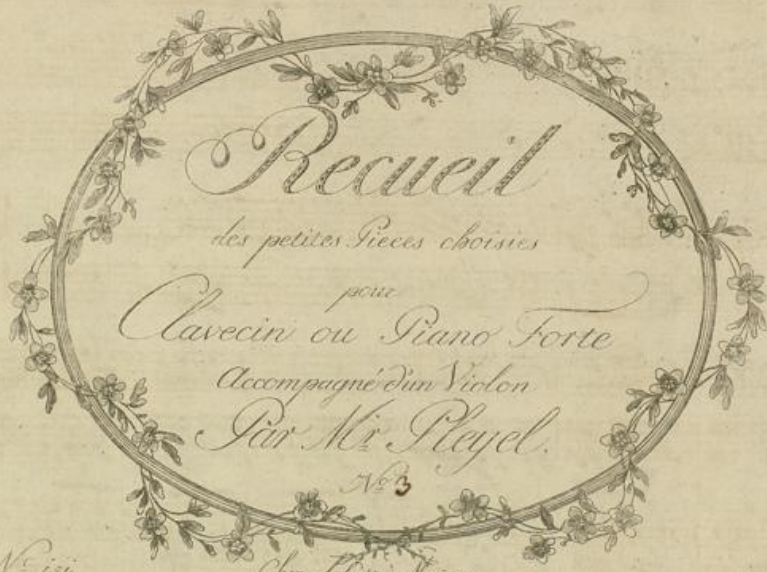 Recueil
des petites Pieces choisies
pour
Clavecin ou Piano Forte
Accompagné d'un Violon
Par Mr. Pleyel.
No. 3